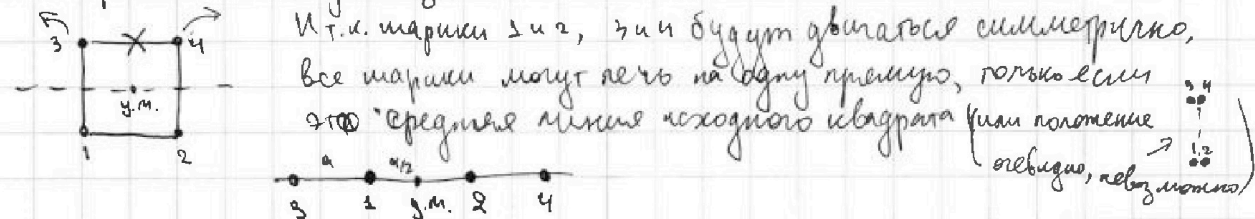 И т.к. шарики 1 и 2, 3 и 4 будут двигаться симметрично,
3 4
все шарики могут лечь на одну прямую, только если
ц.м.
это средняя линия исходного квадрата (или положение
3 4
1,2
очевидно, невозможно)
1 2
a a/2
3 1 ц.м. 2 4